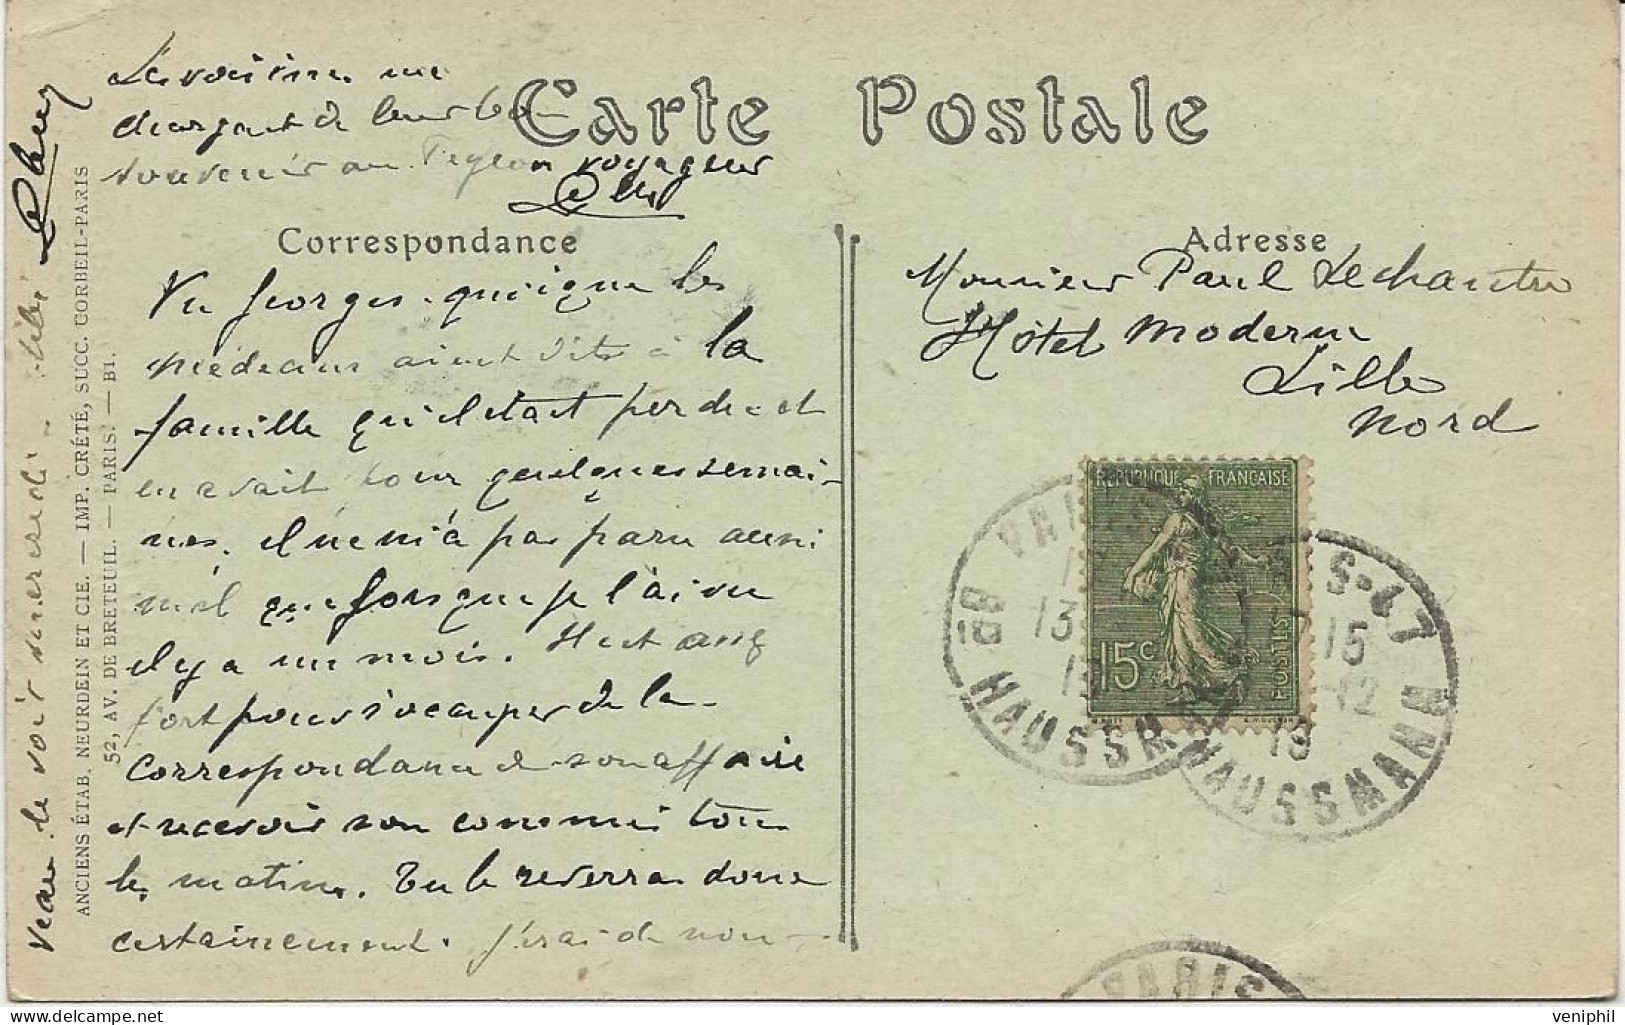 Carte Postale
Les voisins me
chargent de leur bon
souvenir au Pigeon voyageur
Correspondance
Vu Georges. quoique les
médecins aient dits à la
famille qu'il était perdu et
en avait pour quelques semai-
nes, il ne m'a pas paru aussi
mal que lorsque je l'ai vu
il y a un mois. Il est assez
fort pour s'occuper de la
correspondance de son affaire
et recevoir son commis tous
les matins. Tu le reverras donc
certainement. J'irai de nou-
veau le voir mercredi.
ANCIENS ÉTAB. NEURDEIN ET CIE. — IMP. CRÉTÉ, SUCC. CORBEIL-PARIS
52, AV. DE BRETEUIL. — PARIS. — B1.
Adresse
Monsieur Paul Lechantre
Hôtel Moderne
Lille
Nord
REPUBLIQUE FRANÇAISE
15c
POSTES
PARIS
13
BD HAUSSMANN
PARIS-47
15
12
19
HAUSSMANN
PARIS
veniphil